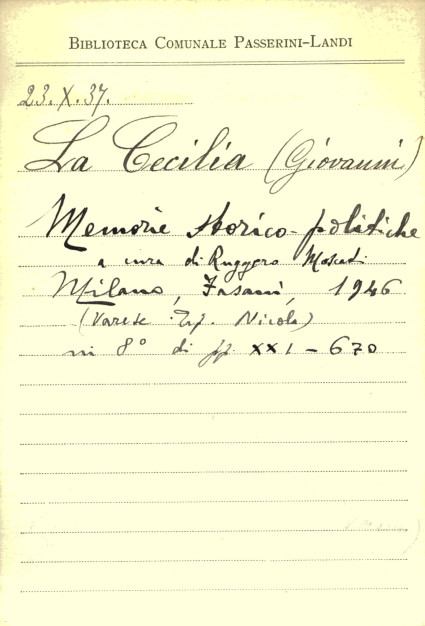 BIBLIOTECA COMUNALE PASSERINI-LANDI
23.X.37.
La Cecilia (Giovanni)
Memorie storico-politiche
a cura di Ruggero Moscati
Milano, Fasani, 1946
(Varese Tip. Nicola)
in 8° di pp. XXI-670